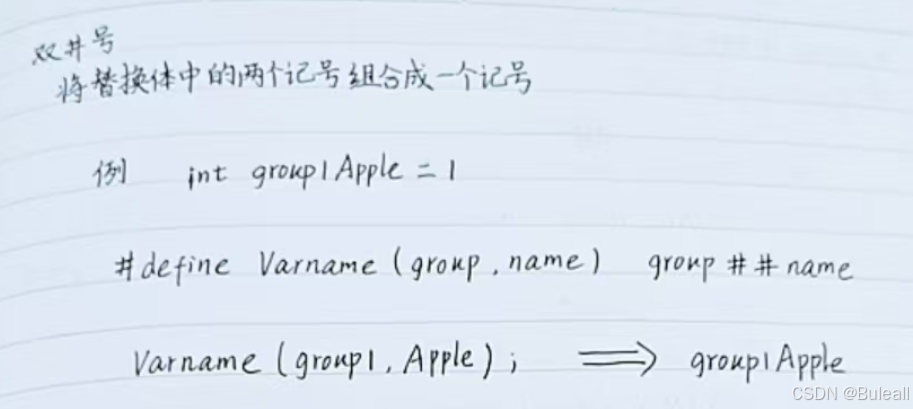 双井号
将替换体中的两个记号组合成一个记号
例 int group1Apple = 1
#define Varname (group, name) group ## name
Varname (group1, Apple); ⟹ group1Apple
CSDN @Buleall